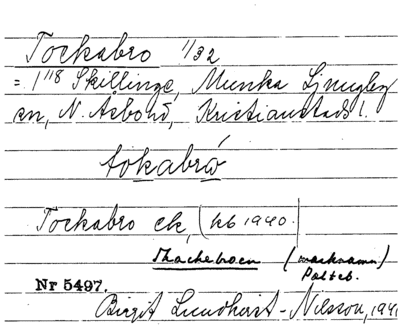 Tockabro 1/32
= 1/18 Skillinge, Munka Ljungby
sn, N. Åsbo hd, Kristianstads l.
tokabrò
Tockabro ek, (kb 1940.
(marknamn)
Palteb.
Nr 5497.
Birgit Lundkvist-Nilsson, 1941